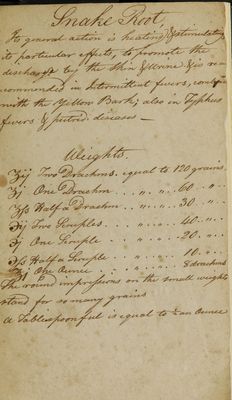 Snake Root,
Its general action is heating & stimulating
its particular effects, to promote the
discharge by the Skin & Urine & is re=
commended in Intermittent fevers,
with the Yellow Bark; also in Typhus
fevers & putrid diseases —
Weights
ʒij Two Drachms. equal to 120 grains
ʒj One Drachm . . " . . " . . 60 . . "
ʒſs Half a Drachm . . " . . " . . 30 . . "
℈ij Two Scruples . . . " . . " . . 40 . . "
℈j One Scruple . . " . . " . . 20 . . "
℈ſs Half a Scruple . . " . . " . . 10 . . "
℥j One Ounce . . " . . " . . 8 drachms
The round impressions on the small weights
stand for so many grains
A Tablespoonful is equal to ½ an Ounce